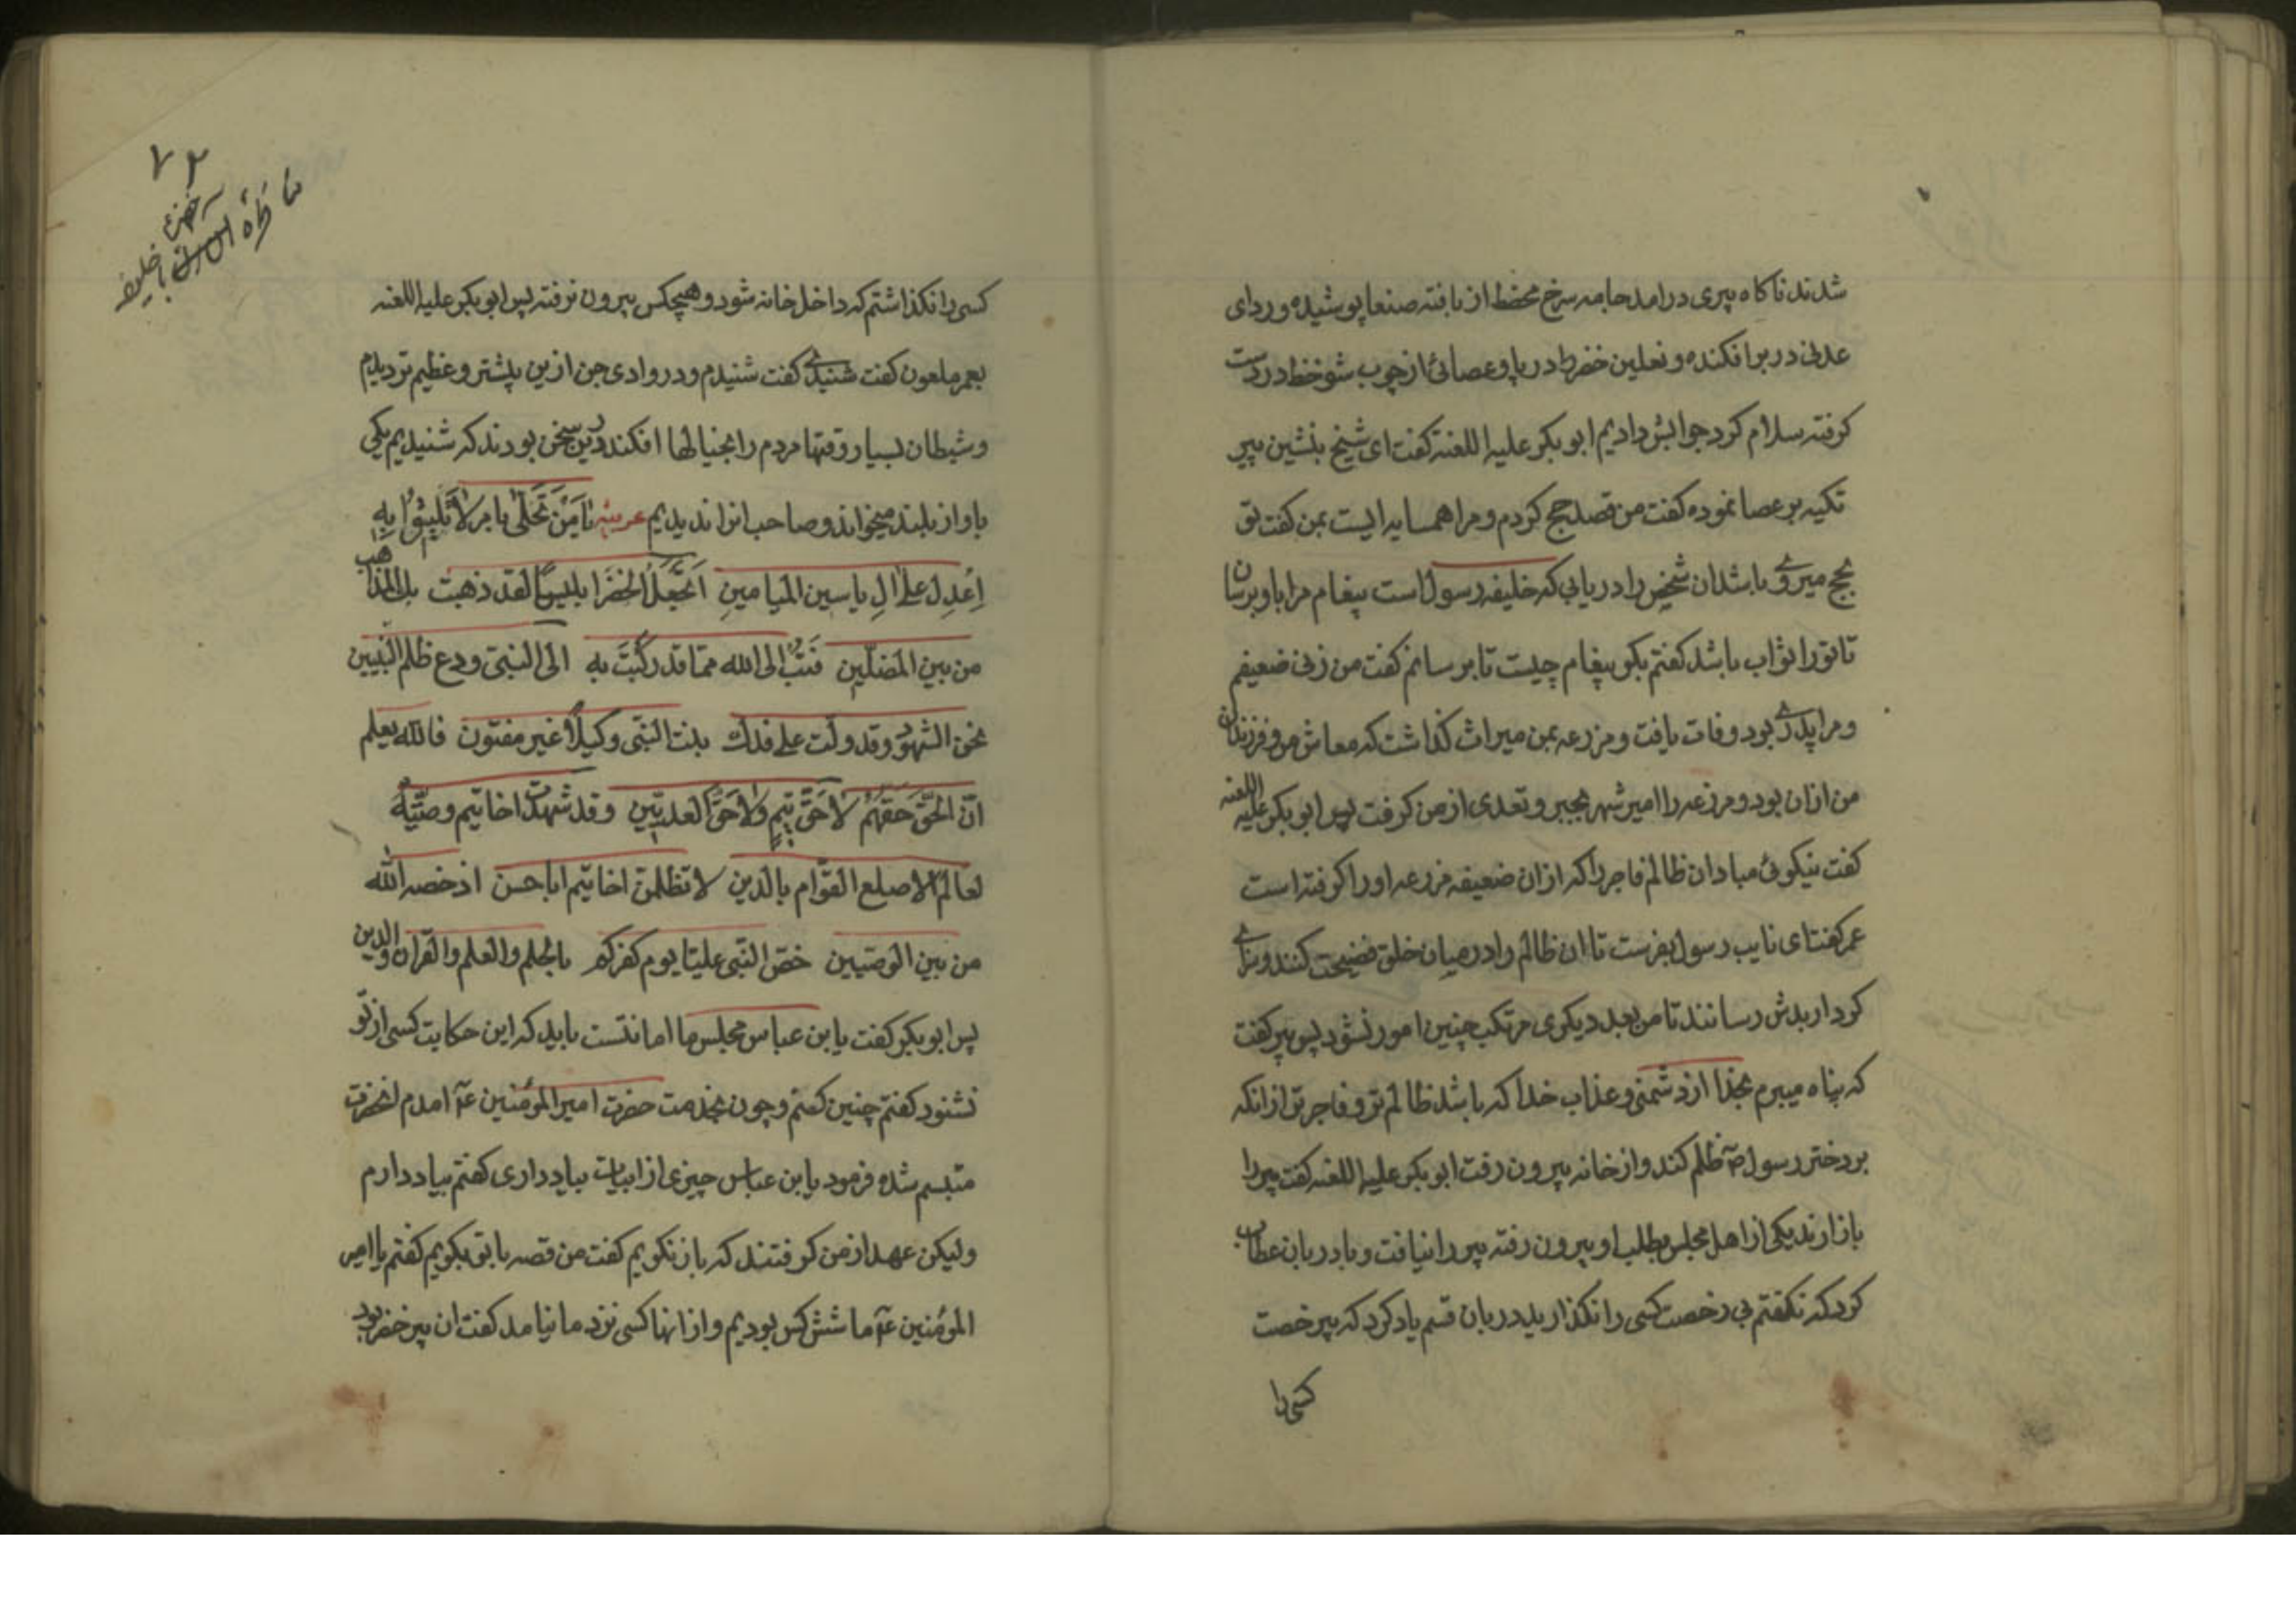 شدند ناکاه پیری درامد جامه سرخ مخطط از بافته صنعا پوشیده و ردای
عدنی در بر افکنده و نعلین در پا و عصائی از چوب در دست
کرفته سلام کرد جوابش دادیم ابوبکر علیه اللعنه کفت ای شیخ بنشین پیر
تکیه بر عصا نموده کفت من قصد حج کردم و مرا همسایه ایست بمن کفت تو
بحج میروی باشد ان شخص را دریابی که خلیفه رسول است پیغام مرا باو برسان
تا تو را ثواب باشد کفتم بکو پیغام چیست تا برسانم کفت من زنی ضعیفم
و مرا پدری بود وفات یافت و مزرعه بمن میراث کذاشت که معاش من و فرزندان
من ازان بود و مزرعه را امیر شهر بجبر و تعدی از من کرفت پس ابوبکر علیه اللعنه
کفت نیکوئی مباد ان ظالم فاجر را که ازان ضعیفه مزرعه او را کرفته است
عمر کفت ای نایب رسول بفرست تا ان ظالم را در میان خلق فضیحت کنند و سزای
کردار بدش رسانند تا من بعد دیکری مرتکب چنین امور نشود پس پیر کفت
که پناه میبرم بخدا از دشمنی و عذاب خدا که باشد ظالم تر و فاجر تر ازانکه
بر دختر رسول ص ظلم کند و از خانه بیرون رفت ابوبکر علیه اللعنه کفت پیر را
باز ارند یکی از اهل مجلس بطلب او بیرون رفته پیر را نیافت و با دربان عطاب
کرد که نکفتم بی رخصت کسی را نکذارید دربان قسم یاد کرد که بیرخصت
کسی را
۷۲
کسی را نکذاشتم که داخل خانه شود و هیچکس بیرون نرفته پس ابوبکر علیه اللعنه
بعمر ملعون کفت شنیدی کفت شنیدم و در وادی جن ازین پیشتر و عظیم تر دیدم
و شیطان بسیار وقتها مردم را بخیالها افکند درین سخن بودند که شنیدیم یکی
باواز بلند میخواند و صاحب انرا ندیدیم عربیه یا من تحلی بامر لا تلیثوا به
اعدل علی ال یاسین المیامین اتجعل الخضر ابلیسا لقد ذهبت بک المذاهب
من بین المضلین فتب الی الله مما قد رکبت به الی النبی ودع ظلم النبیین
نحن الشهود وقد ولت علی فدک بنت النبی وکیلا غیر مفتون فالله یعلم
ان الحق حقهم لا حق تیم ولا حق العدیین وقد شهدت اخا تیم وصیته
لعالم الاصلع القوام بالدین لا تظلمن اخا تیم ابا حسن اذ خصه الله
من بین الوصیین خص النبی علیا یوم کفرکم بالحلم والعلم والقران والدین
پس ابوبکر کفت یا بن عباس مجلس ما امانتست باید که این حکایت کسی از تو
نشنود کفتم چنین کنم و چون بخدمت حضرت امیر المؤمنین ع امدم انحضرت
متبسم شده فرمود یا بن عباس چیزی از ابیات بیاد داری کفتم بیاد دارم
ولیکن عهد از من کرفتند که باز نکویم کفت من قصه با تو بکویم کفتم یا امیر
المؤمنین ع ما شش کس بودیم و ازانها کسی نزد ما نیامد کفت ان پیر خضر بود